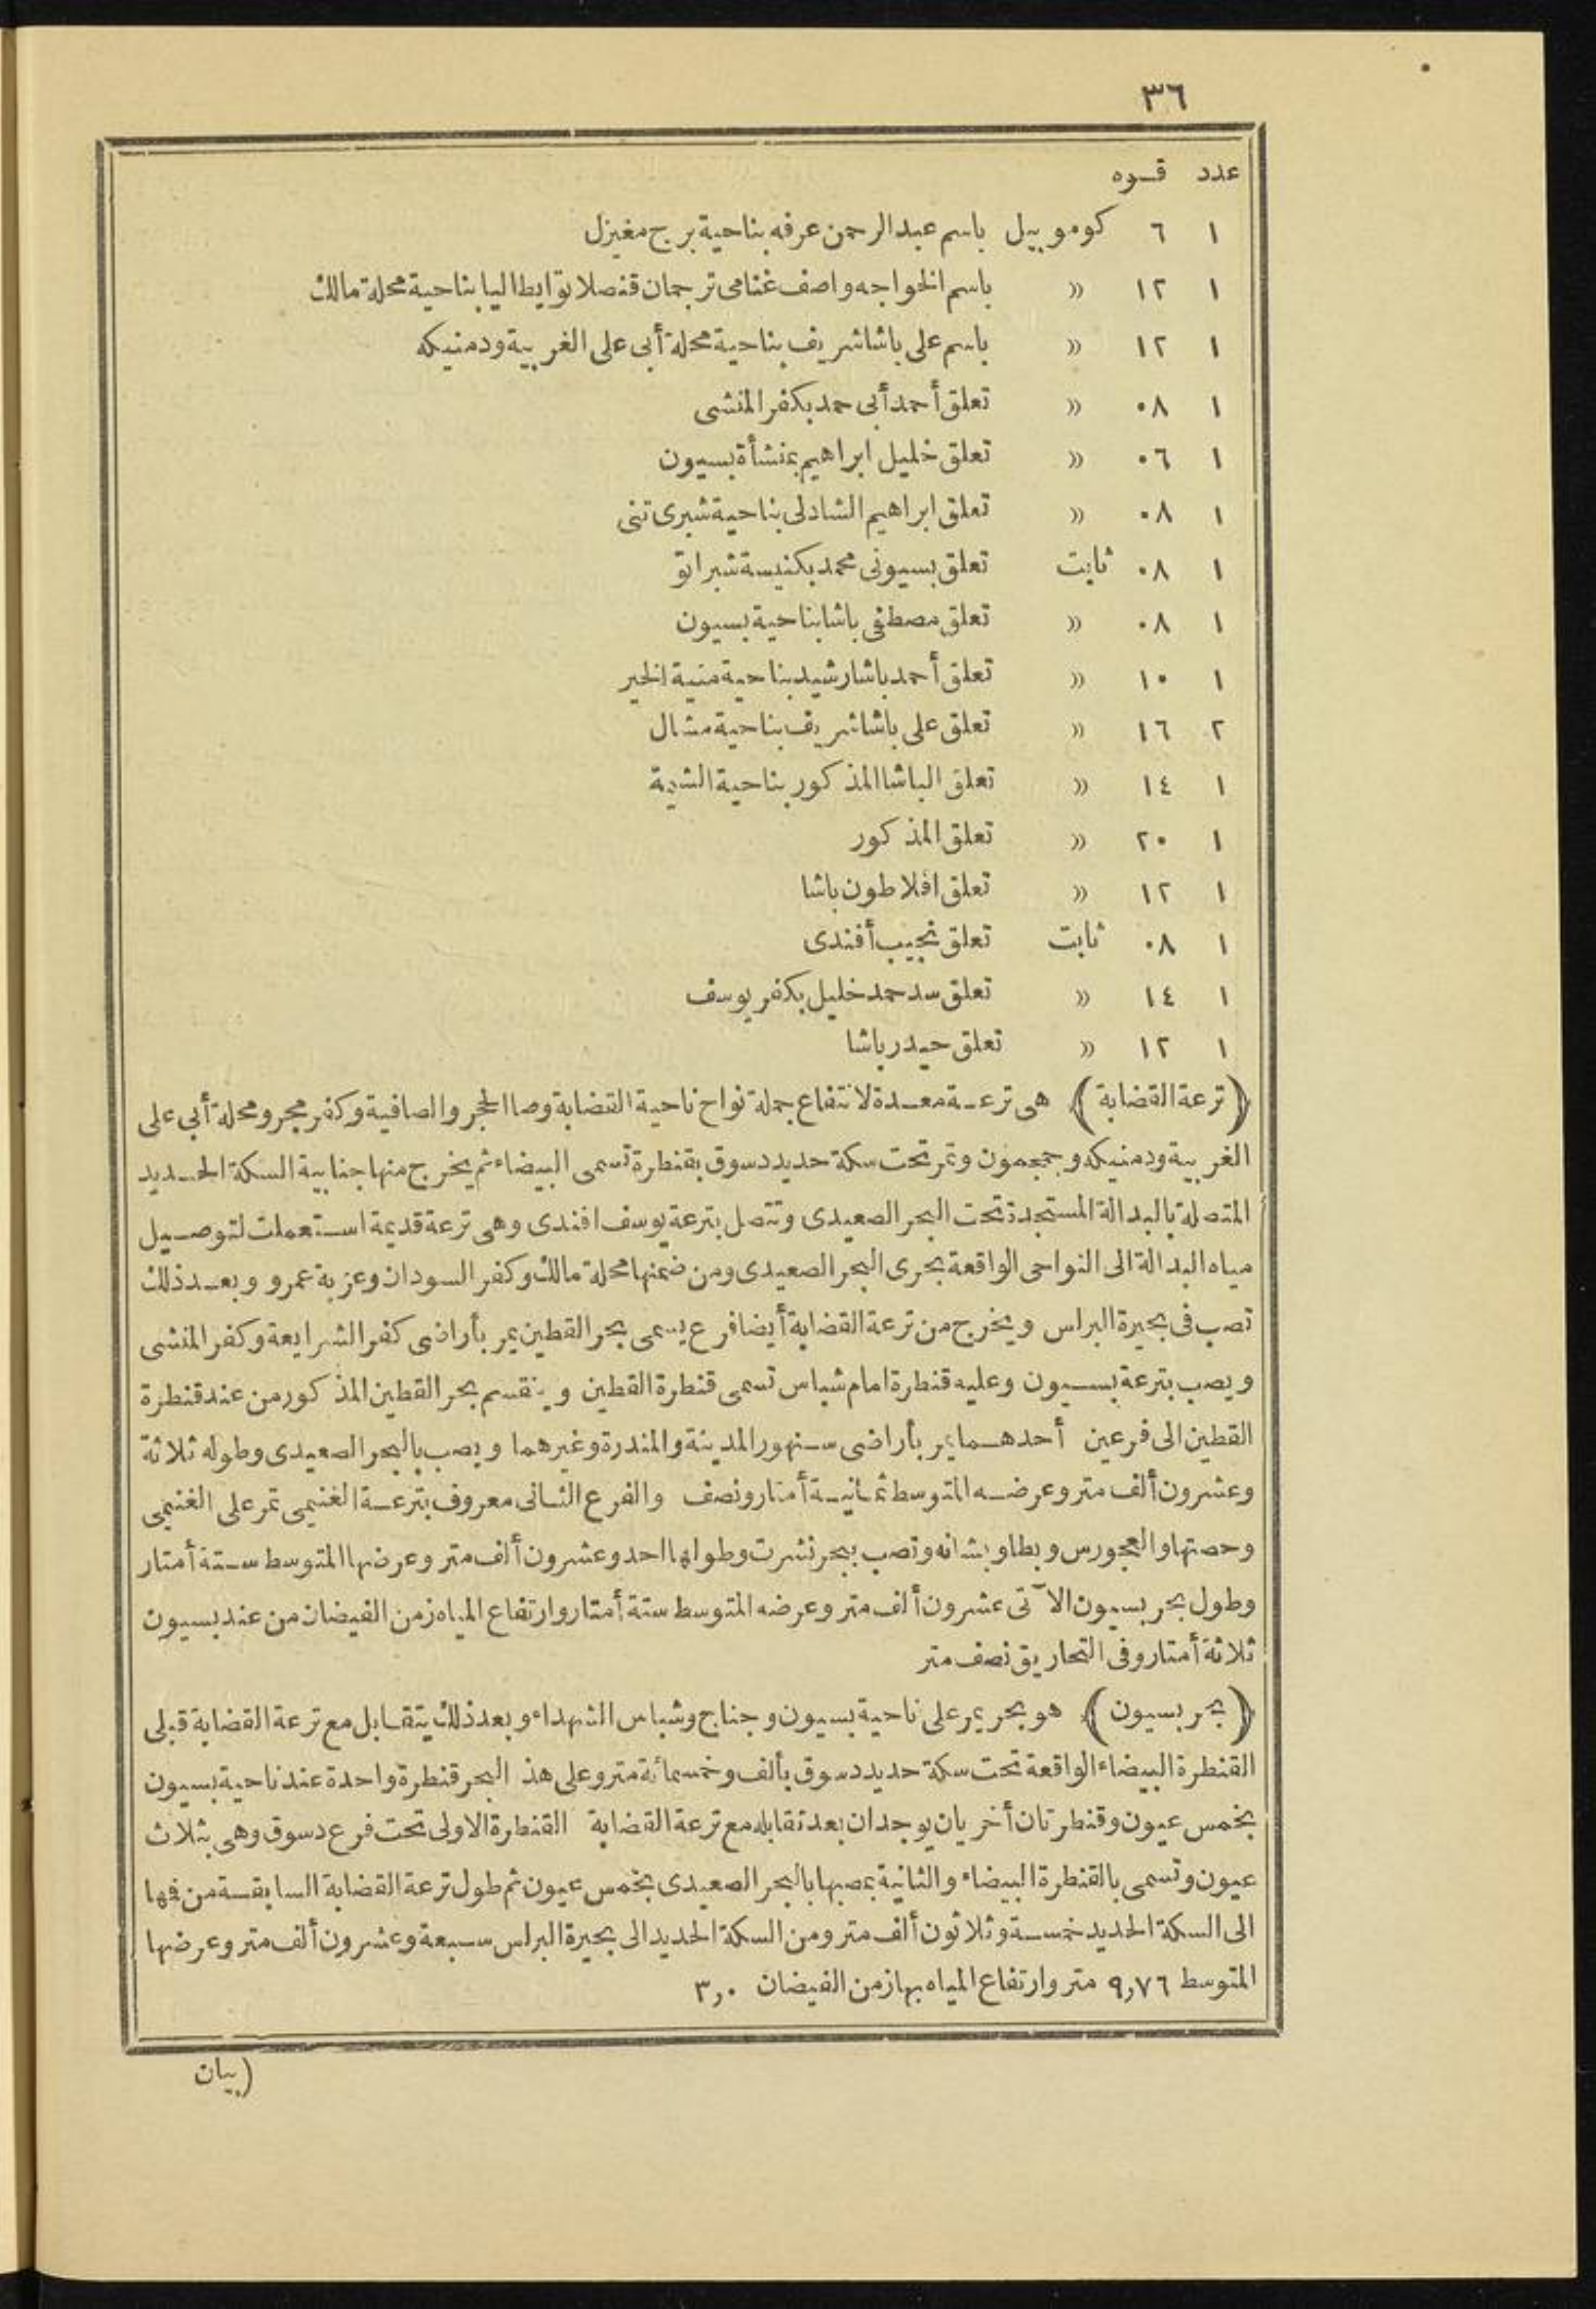 ٣٦
عدد قـوه
١ ٦ كوموبيل باسم عبدالرحمن عرفه بناحية برج مغيزل
١ ١٢ » باسم الخواجه واصف غنامى ترجمان قنصلاتوايطاليا بناحية محلة مالك
١ ١٢ » باسم على باشاشريف بناحية محلة أبى على الغربية ودمنيكه
١ ٠٨ » تعلق أحمد أبى حمد بكفر المنشى
١ ٠٦ » تعلق خليل ابراهيم بمنشأة بسيون
١ ٠٨ » تعلق ابراهيم الشادلى بناحية شبرى تنى
١ ٠٨ ثابت تعلق بسيونى محمد بكنيسة شبراتو
١ ٠٨ » تعلق مصطفى باشا بناحية بسيون
١ ١٠ » تعلق أحمد باشارشيد بناحية منية الخير
٢ ١٦ » تعلق على باشاشريف بناحية مشال
١ ١٤ » تعلق الباشا المذكور بناحية الشيمة
١ ٢٠ » تعلق المذكور
١ ١٢ » تعلق افلاطون باشا
١ ٠٨ ثابت تعلق نجيب أفندى
١ ١٤ » تعلق سدحمد خليل بكفر يوسف
١ ١٢ » تعلق حيدر باشا
﴿ترعة القضابة﴾ هى ترعـة معـدة لانتفاع جملة نواح ناحية القضابة وصا الحجر والصافية وكفر مجر ومحلة أبى على
الغربية ودمنيكه وجمجمون وتمر تحت سكة حديد دسوق بقنطرة تسمى البيضاء ثم يخرج منها جنابية السكة الحـديد
المتصلة بالبدالة المستجدة تحت البحر الصعيدى وتتصل بترعة يوسف افندى وهى ترعة قديمة اسـتعملت لتوصـيل
مياه البدالة الى النواحى الواقعة بحرى البحر الصعيدى ومن ضمنها محلة مالك وكفر السودان وعزبة عمرو وبعـد ذلك
تصب فى بحيرة البراس ويخرج من ترعة القضابة أيضا فرع يسمى بحر القطين يمر بأراضى كفر الشرايعة وكفر المنشى
ويصب بترعة بسـيون وعليه قنطرة امام شباس تسمى قنطرة القطين وينقسم بحر القطين المذكور من عند قنطرة
القطين الى فرعين أحدهـما يمر بأراضى سـنهور المدينة والمندرة وغيرهما ويصب بالبحر الصعيدى وطوله ثلاثة
وعشرون ألف متر وعرضـه المتوسط ثمـانيـة أمتار ونصف والفرع الثـانى معروف بترعـة الغنيمى تمر على الغنيمى
وحصتها والعجورس وبطاو بشانه وتصب ببحر نشرت وطولها احد وعشرون ألف متر وعرضها المتوسط سـتة أمتار
وطول بحر بسيون الآتى عشرون ألف متر وعرضه المتوسط ستة أمتار وارتفاع المياه زمن الفيضان من عند بسيون
ثلاثة أمتار وفى التحاريق نصف متر
﴿بحر بسيون﴾ هو بحر يمر على ناحية بسيون وجناج وشباس الشهداء وبعد ذلك يتقـابل مع ترعة القضابة قبلى
القنطرة البيضاء الواقعة تحت سكة حديد دسوق بألف وخمسمائة متر وعلى هذ البحر قنطرة واحدة عند ناحية بسيون
بخمس عيون وقنطرتان أخريان يوجدان بعد تقابله مع ترعة القضابة القنطرة الاولى تحت فرع دسوق وهى بثلاث
عيون وتسمى بالقنطرة البيضاء والثانية بمصبها بالبحر الصعيدى بخمس عيون ثم طول ترعة القضابة السابقـة من فها
الى السكة الحديد خمسـة وثلاثون ألف متر ومن السكة الحديد الى بحيرة البراس سـبعة وعشرون ألف متر وعرضها
المتوسط ٩,٧٦ متر وارتفاع المياه بها زمن الفيضان ٣,٠
(بيان